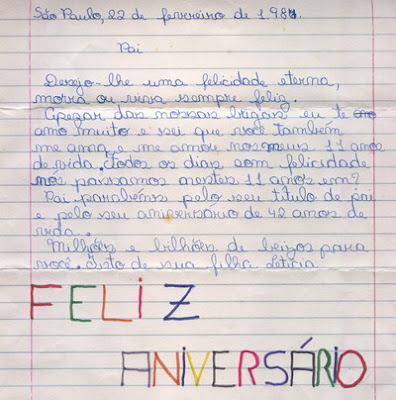 São Paulo, 22 de fevereiro de 1.987.
Pai
Desejo-lhe uma felicidade eterna,
morra ou viva sempre feliz.
Apezar das nossas brigas eu te
amo muito e sei que você também
me ama, e me amou nos meus 11 anos
de vida. Todos os dias com felicidade
nós passamos nestes 11 anos em?
Pai parabéns pelo seu título de pai
e pelo seu aniversário de 42 anos de
vida.
Milhões e bilhões de beijos para
você. Isto de sua filha Letícia
FELIZ
ANIVERSÁRIO